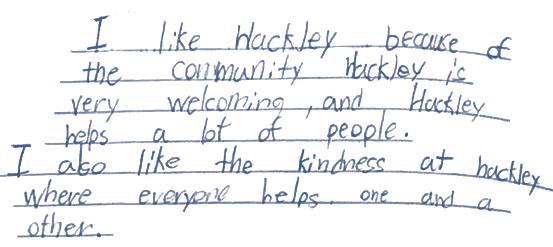 I like Hackley because of
the community Hackley is
very welcoming, and Hackley
helps a lot of people.
I also like the kindness at hackley
where everyone helps one and a
other.